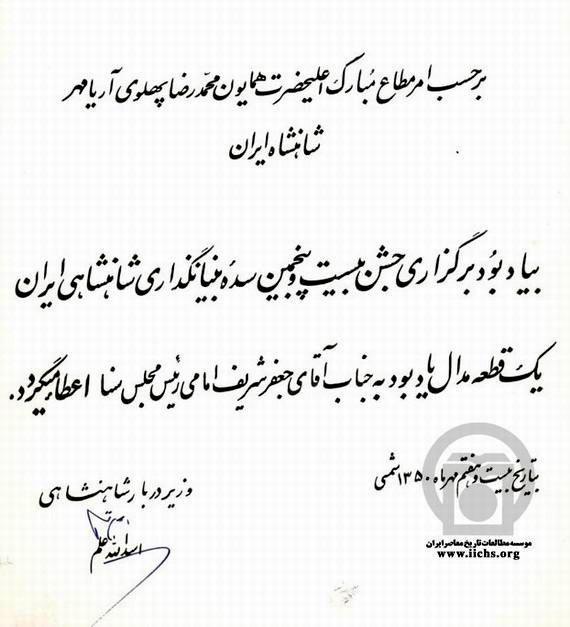 برحسب امر مطاع مُبارک اعلیحضرت همایون محمّد رضا پهلوی آریامهر
شاهنشاه ایران
بیادبُود برگزاری جشن بیست و پنجمین سدهٔ بنیانگذاری شاهنشاهی ایران
یک قطعه مدال یادبود به جناب آقای جعفر شریف امامی رئیس مجلس سنا اعطاء میگردد.
بتاریخ بیست و هفتم مهرماه ۱۳۵۰ شمسی
وزیر دربار شاهنشاهی
اسدالله علم
موسسه مطالعات تاریخ معاصر ایران
www.iichs.org